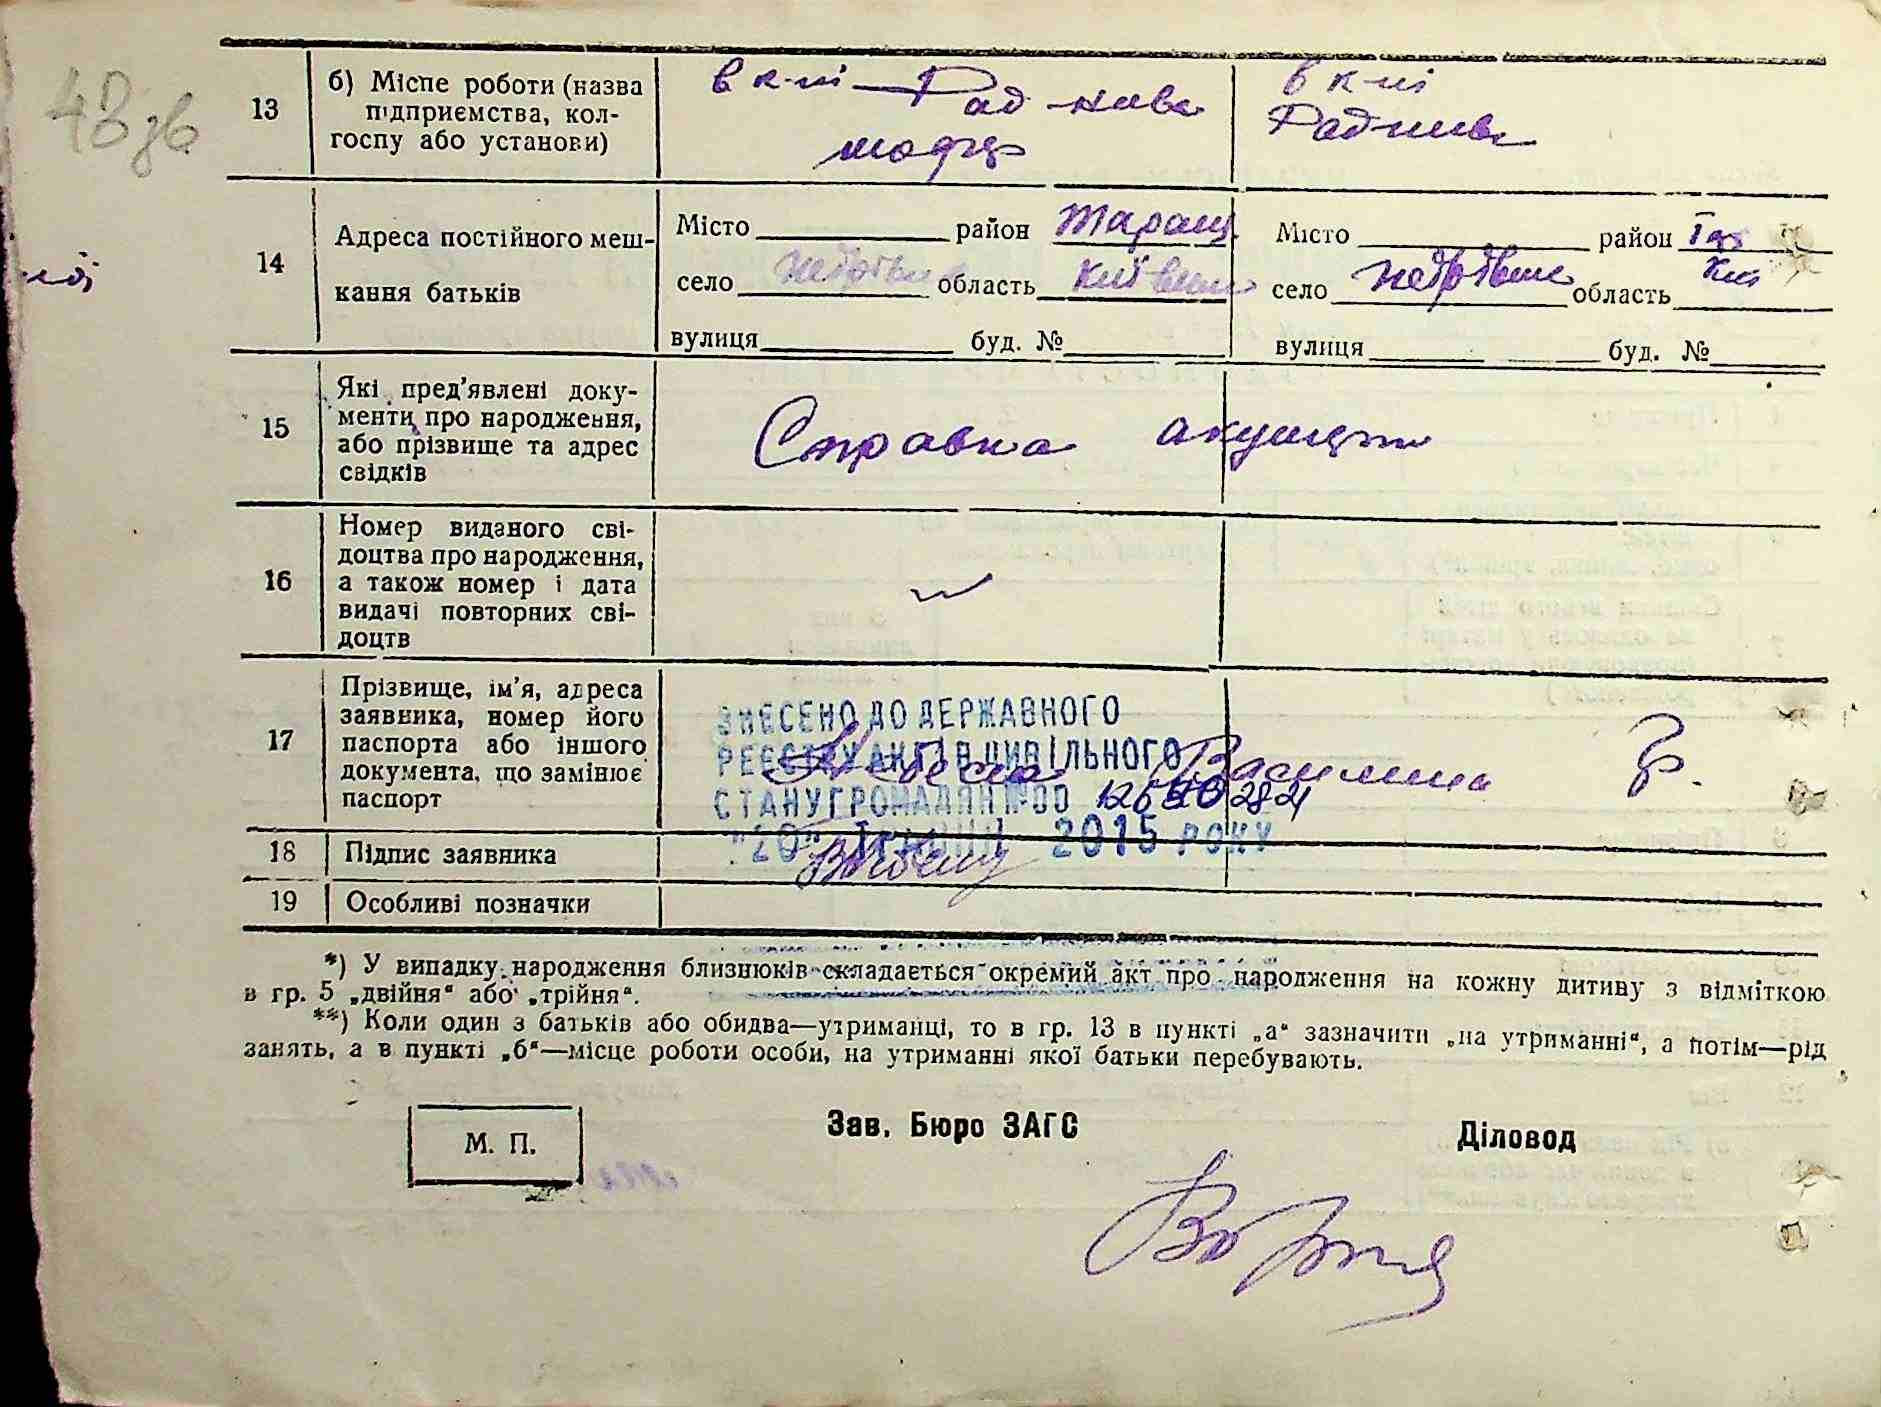 48 зв
13
б) Місце роботи (назва
підприємства, кол-
госпу або установи)
в к-пі Рад-нива
шофер
в к-пі
Радниva
14
Адреса постійного меш-
кання батьків
Місто район Таращ
село область Київськ
вулиця буд. №
Місто район Тар
село область Київ
вулиця буд. №
15
Які пред'явлені доку-
менти про народження,
або прізвище та адрес
свідків
Справка акушерк
16
Номер виданого сві-
доцтва про народження,
а також номер і дата
видачі повторних сві-
доцтв
17
Прізвище, ім'я, адреса
заявника, номер його
паспорта або іншого
документа, що замінює
паспорт
ВНЕСЕНО ДО ДЕРЖАВНОГО
РЕЄСТРУ АКТІВ ЦИВІЛЬНОГО
СТАНУ ГРОМАДЯН №00
"20" травня 2015 РОКУ
Василина Гр.
18
Підпис заявника
19
Особливі позначки
*) У випадку народження близнюків складається окремий акт про народження на кожну дитину з відміткою
в гр. 5 „двійня“ або „трійня“.
**) Коли один з батьків або обидва—утриманці, то в гр. 13 в пункті „а“ зазначити „на утриманні“, а потім—рід
занять, а в пункті „б“—місце роботи особи, на утриманні якої батьки перебувають.
М. П.
Зав. Бюро ЗАГС
Діловод